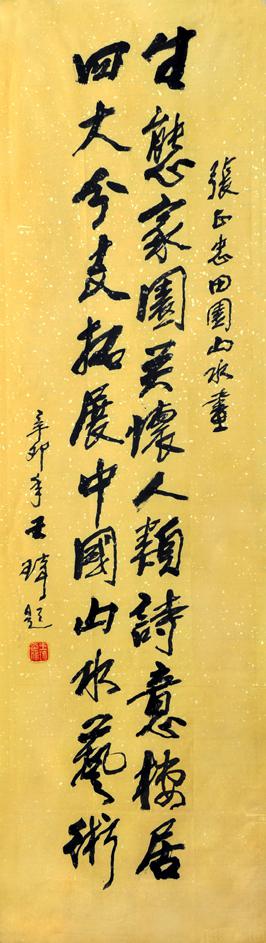 張正忠田園山水畫
生態家園关懷人類詩意棲居
四大分支拓展中國山水藝術
辛卯年王题